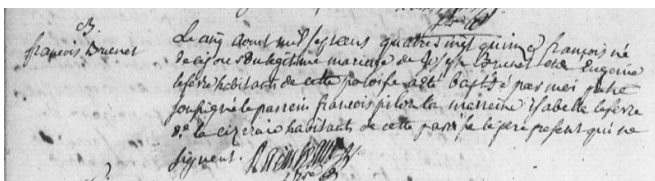 B
françois Brunet
Le cinq aout mil sept cens quatre vingt quinze françois né
de ce jour du legitime mariage de joseph Brunet et de Eugenie
lefevre habitants de cette paroisse a été baptisé par moi pretre
soussigné le parrein françois pilon la marreine isabelle lefevre
habitants de cette paroisse le pere present qui ne
signent.